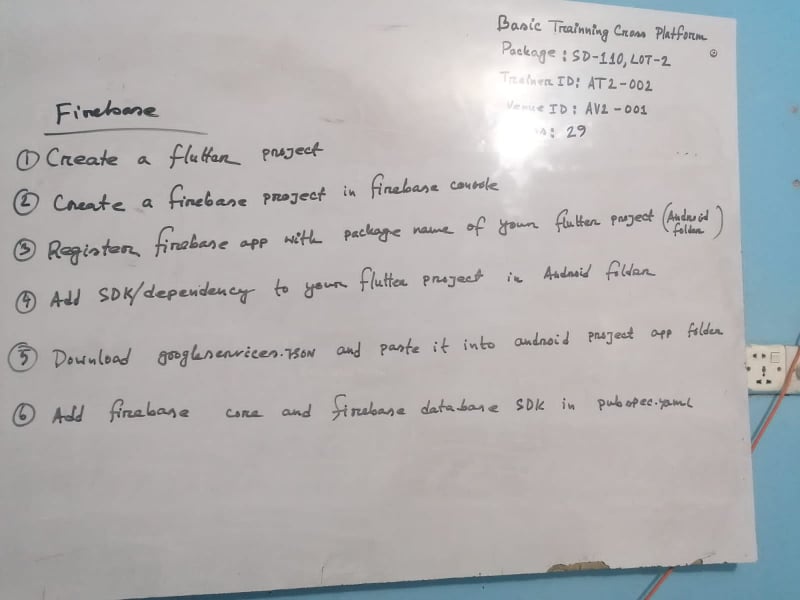 Basic Trainning Cross Platform
Package : SD-110, LOT-2
Trainer ID: AT2-002
Venue ID: AV2-001
: 29
Firebase
① Create a flutter project
② Create a firebase project in firebase console
③ Register firebase app with package name of your flutter project (Android folder)
④ Add SDK/dependency to your flutter project in Android folder
⑤ Download googleservices.JSON and paste it into android project app folder
⑥ Add firebase core and firebase database SDK in pubspec.yaml